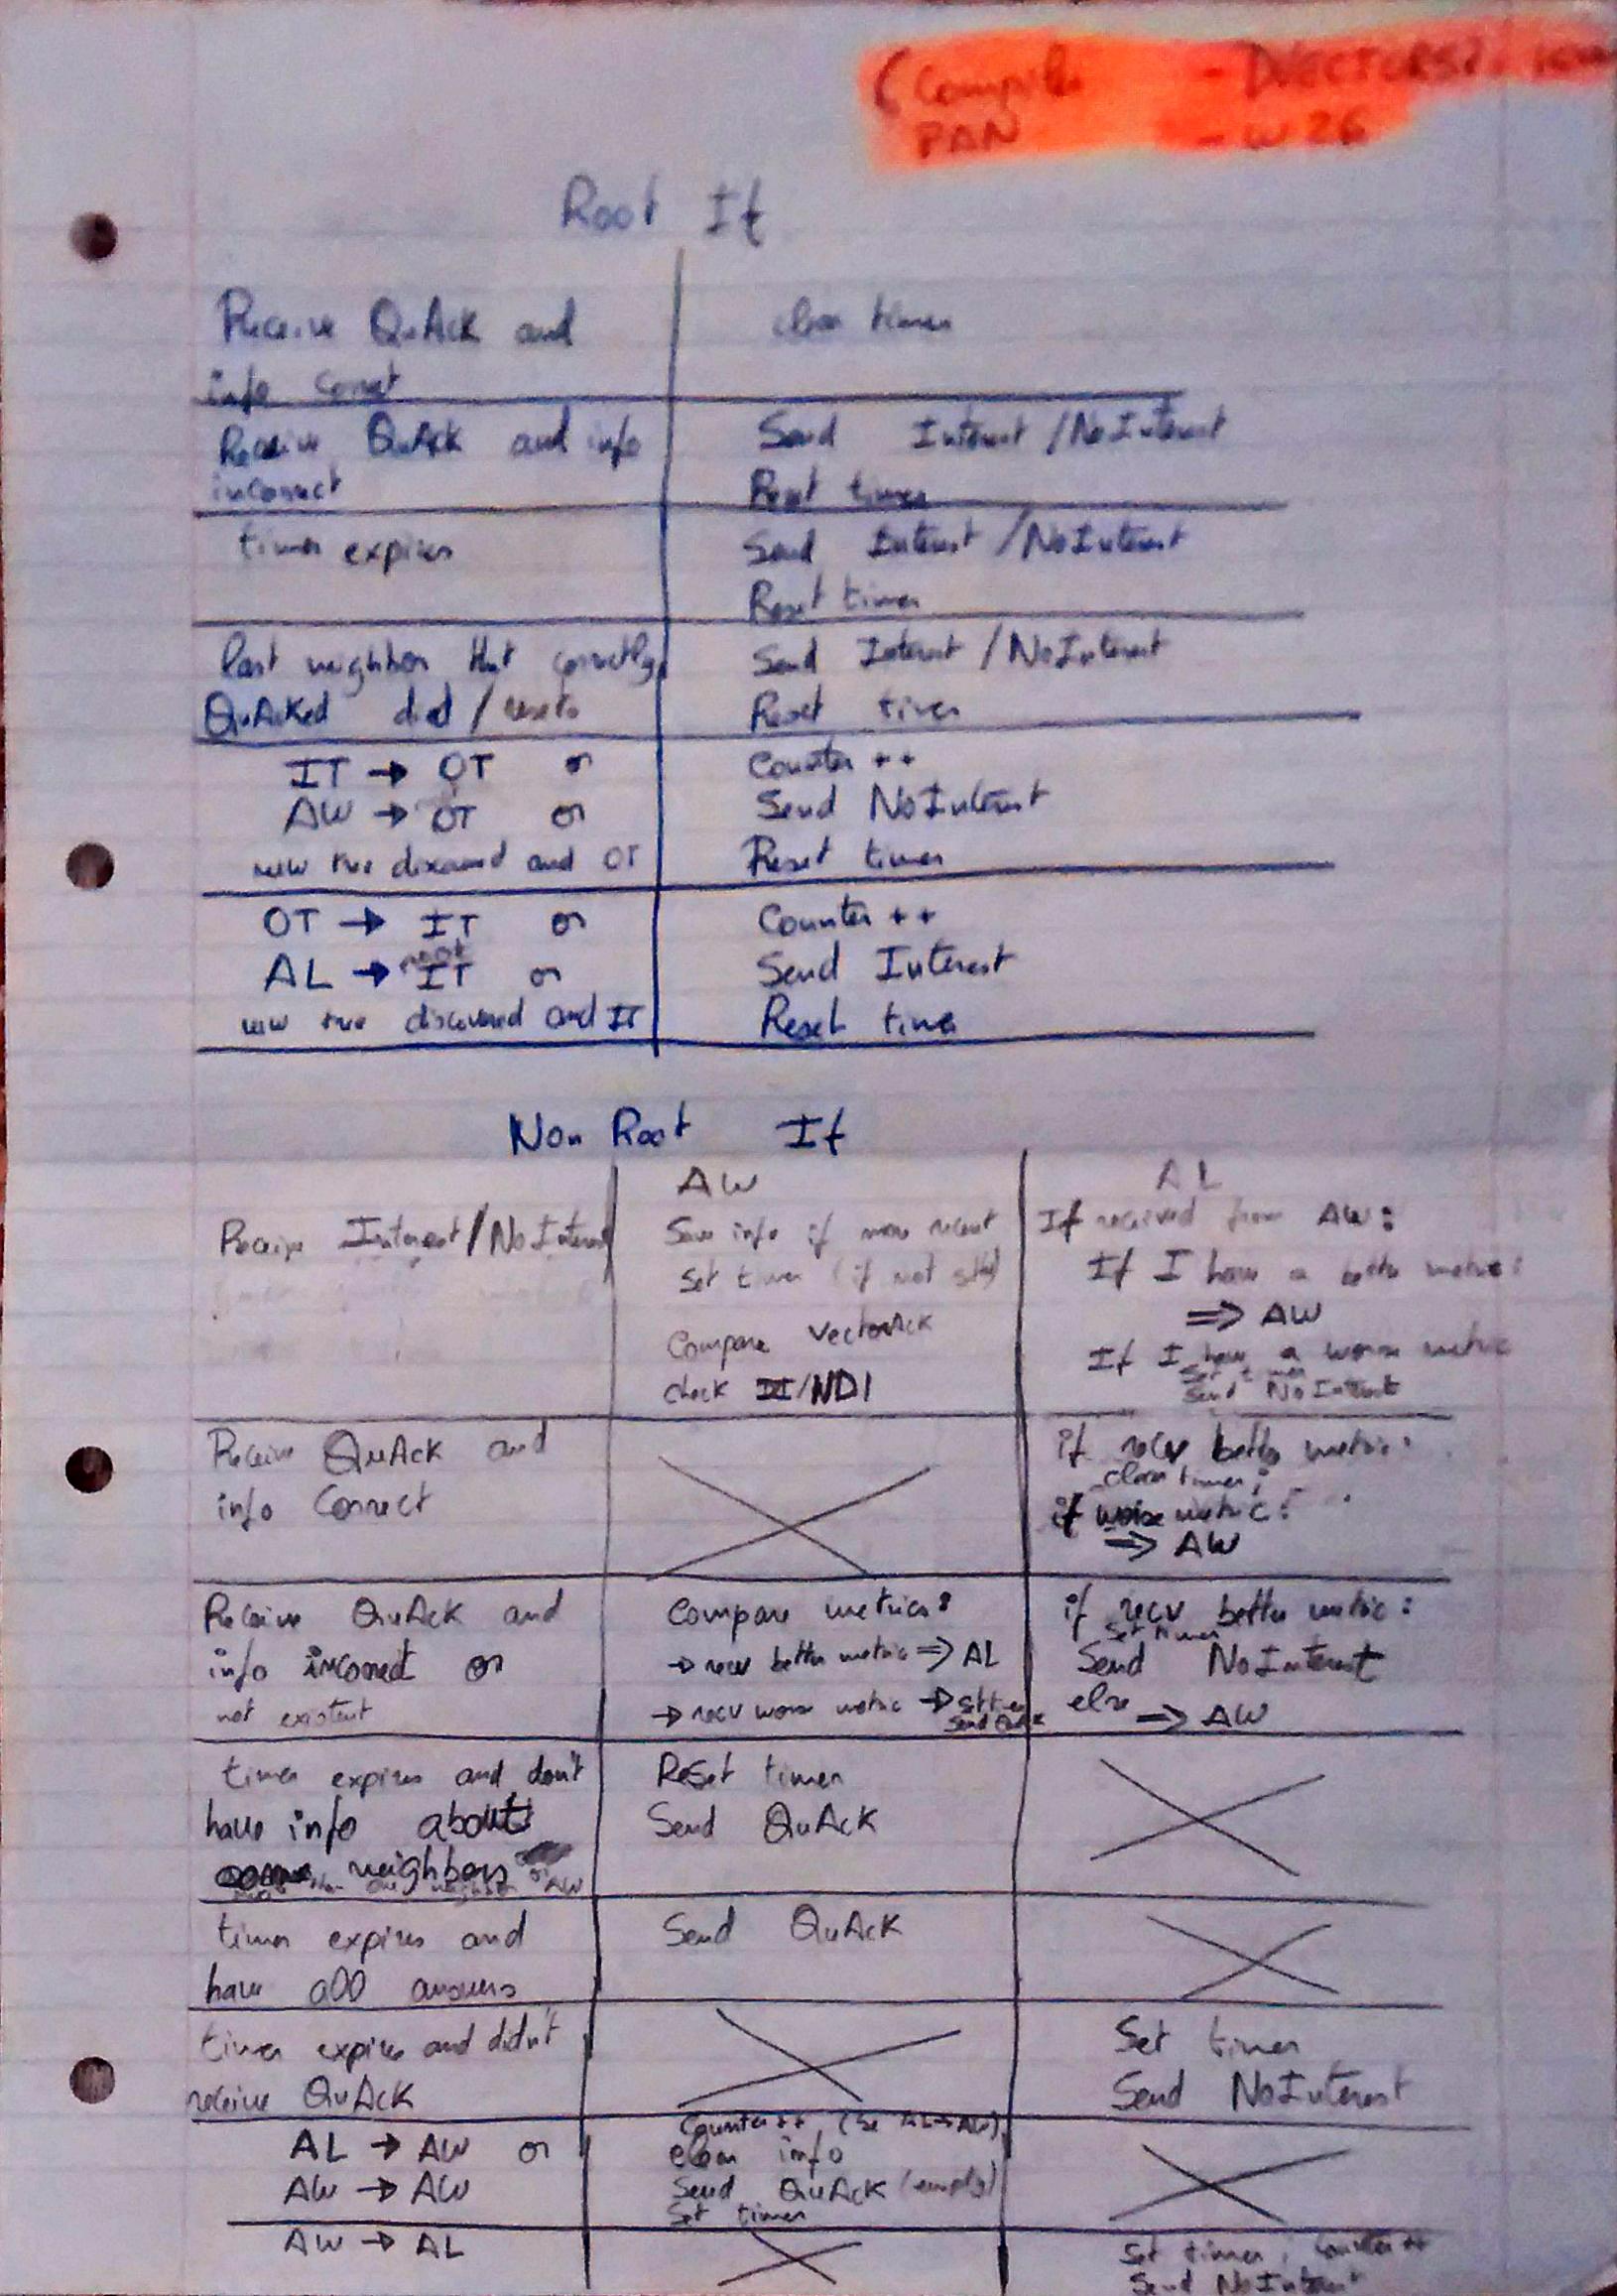 (Compile - DVECTORS?
PAN - W 26
Root If
Receive QuAck and
info correct
clear timer
Receive QuAck and info
incorrect
Send Interest /NoInterest
Reset timer
timer expires
Send Interest /NoInterest
Reset timer
last neighbor that correctly
QuAcked died / resets
Send Interest /NoInterest
Reset timer
IT → OT or
AW → OT or
new tree discovered and OT
Counter ++
Send NoInterest
Reset timer
OT → IT or
root
AL → IT or
new tree discovered and IT
Counter ++
Send Interest
Reset timer
Non Root If
AW
AL
Receive Interest/NoInterest
Save info if more recent
Set timer (if not set)
Compare VectorAck
check /NDI
If received from AW:
If I have a better metric:
⇒ AW
If I have a worse metric
Set timer
Send NoInterest
Receive QuAck and
info Correct
if recv better metric:
clear timer;
if worse metric:
⇒ AW
Receive QuAck and
info incorrect or
not existent
Compare metrics:
→ recv better metric ⇒ AL
→ recv worse metric → set timer
Send QuAck
if recv better metric:
Set timer
Send NoInterest
else ⇒ AW
timer expires and don't
have info about
neighbors
neighbor AW
Reset timer
Send QuAck
timer expires and
have all answers
Send QuAck
timer expires and didn't
receive QuAck
Set timer
Send NoInterest
AL → AW or
AW → AW
Counter++ (se AL→AW)
clean info
Send QuAck (empty)
Set timer
AW → AL
Set timer, Counter++
Send NoInterest